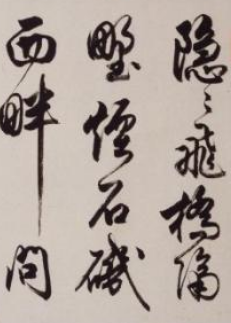 隐〻飛橋隔
野煙石磯
西畔問